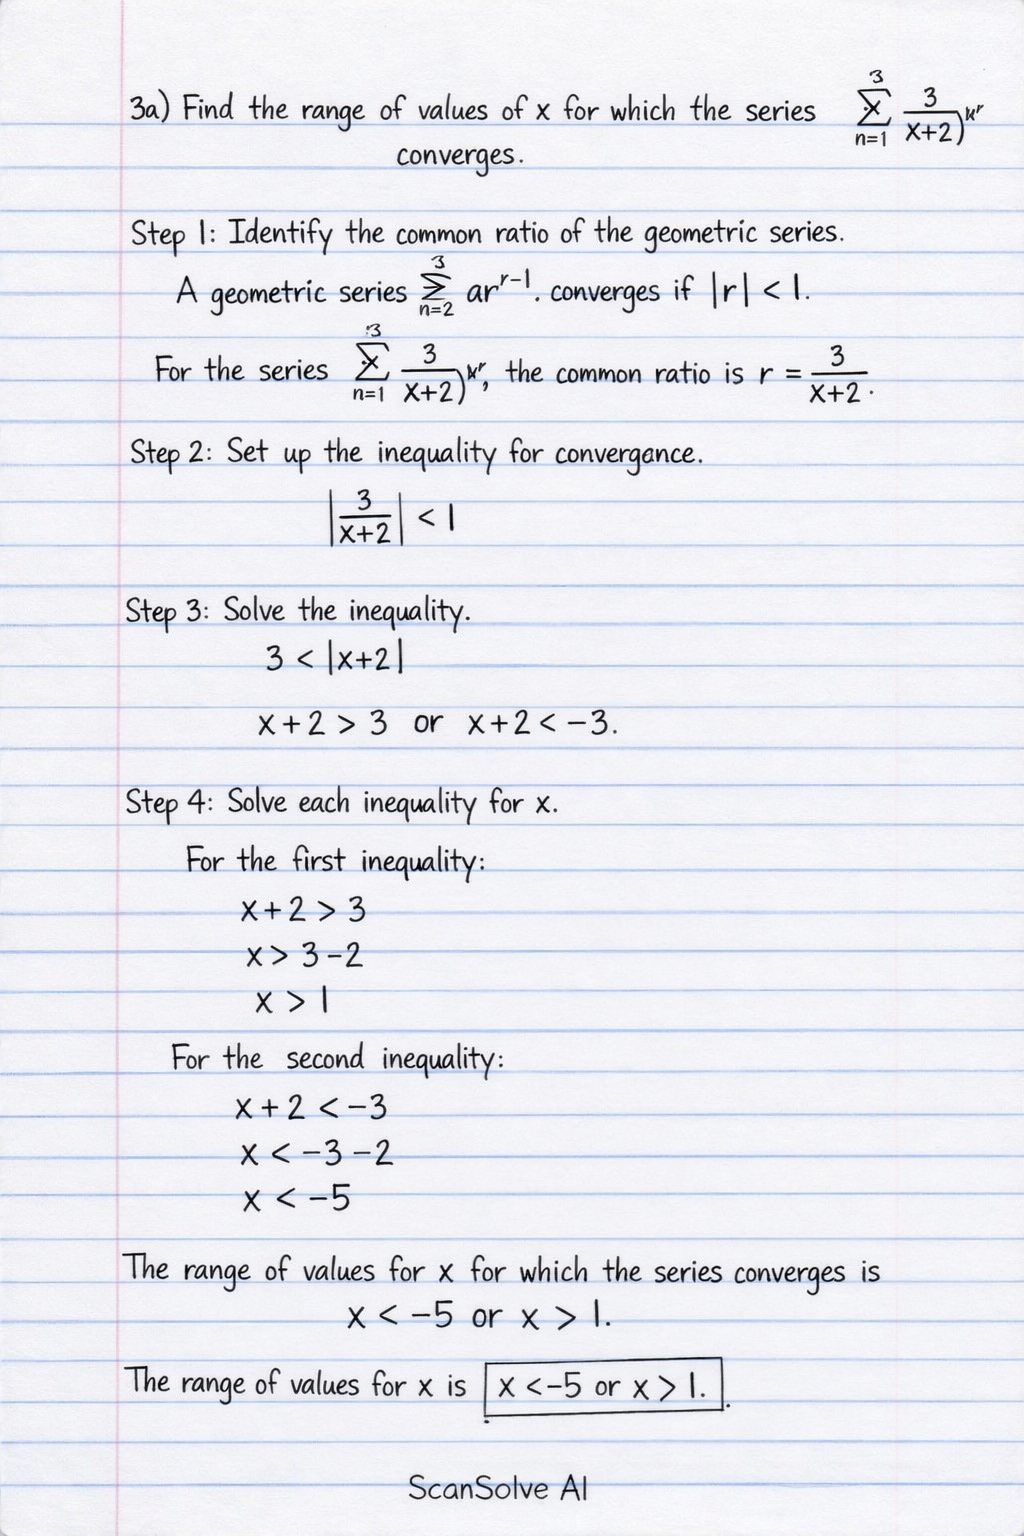 3a) Find the range of values of x for which the series ∑ 3 n=1 3/(x+2)
converges.
Step 1: Identify the common ratio of the geometric series.
A geometric series ∑ 3 n=2 ar^(r-1). converges if |r| < 1.
For the series ∑ 3 n=1 3/(x+2), the common ratio is r = 3/(x+2).
Step 2: Set up the inequality for convergance.
|3/(x+2)| < 1
Step 3: Solve the inequality.
3 < |x+2|
x+2 > 3 or x+2 < -3.
Step 4: Solve each inequality for x.
For the first inequality:
x+2 > 3
x > 3-2
x > 1
For the second inequality:
x+2 < -3
x < -3-2
x < -5
The range of values for x for which the series converges is
x < -5 or x > 1.
The range of values for x is x < -5 or x > 1.
ScanSolve AI